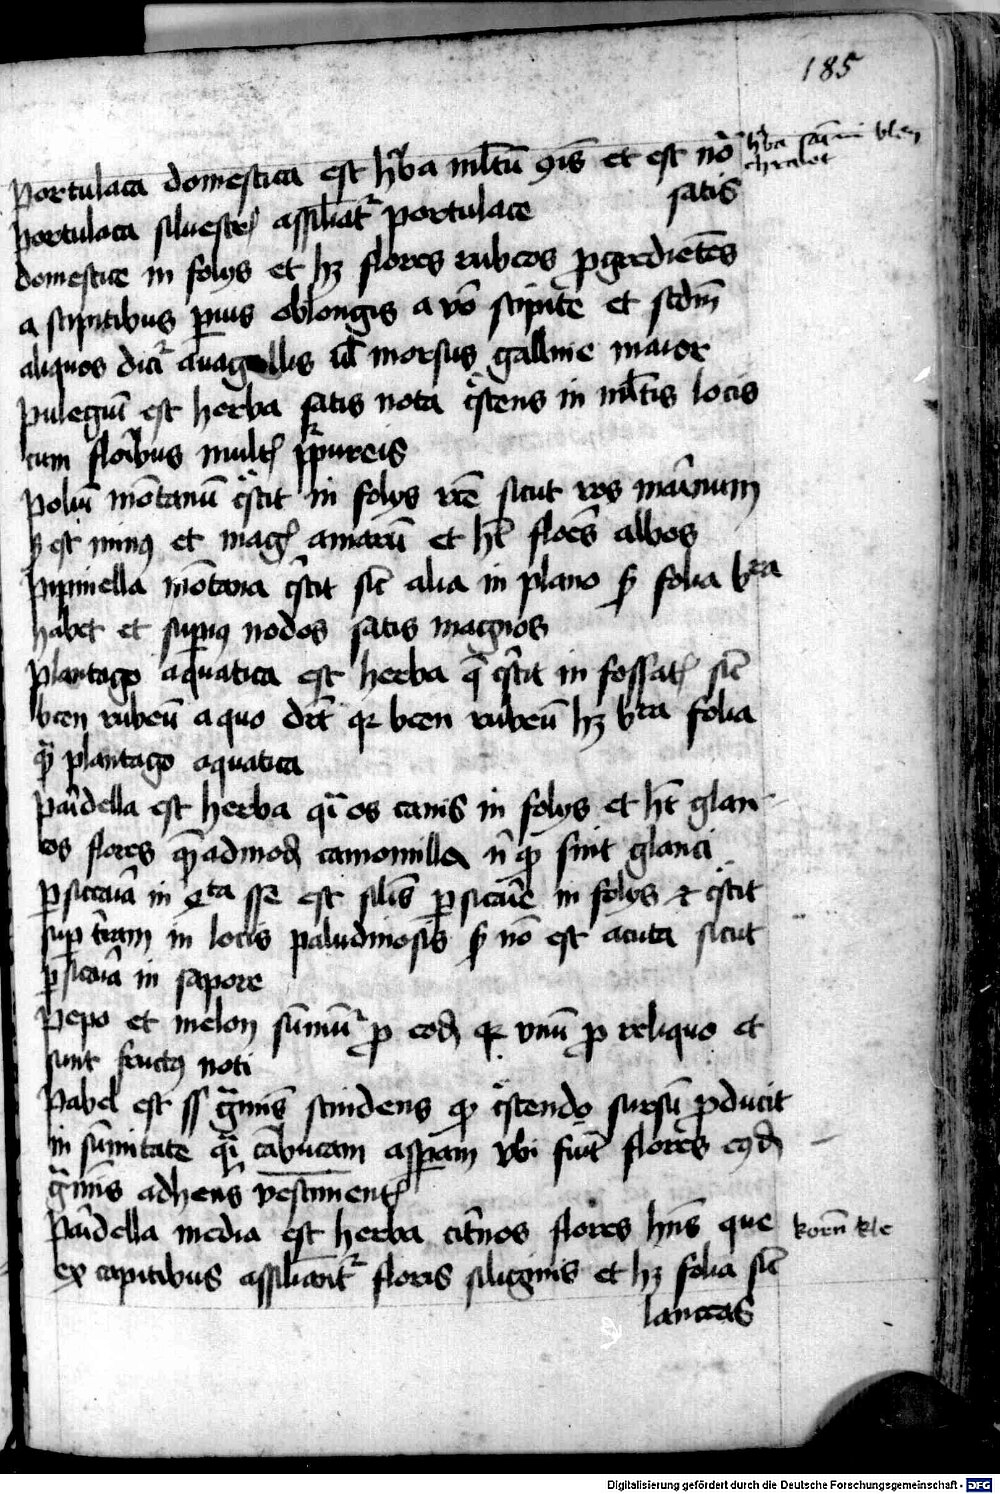 185
Portulaca domestica est hba mltu ois et est no
satis
hba
Portulaca siluestr assiliat portulace
domestice in folys et hz flores rubeos pgredietes
a stipitibus puis oblongis a vo stipite et scdm
aliquos dicit auagollis ul morsus galline maior
Pulegiu est herba satis nota cstens in mltis locis
cum floibus mult ppureis
Poliu motanu cscit in folys rce sicut ros marinum
z est minus et mag amaru et ht floes albos
Pipinella motana cscit sic alia in plano sz folia bra
habet et supius nodos satis magnos
Plantago aquatica est herba q cscit in fossat sic
bcen rubeu a quo drt qz bcen rubeu hz bra folia
qz plantago aquatica
Paudella est herba qi os canis in folys et ht glau
cos flores qeadmod camomilla n qz sint glauci
psicaria in qta spe est silis psicarie in folys et cscit
sup tram in locis paludinosis sz no est acuta sicut
psicaria in sapore
Pepo et melon sumut p eod qz vnu p reliquo et
sunt fructus noti
Pabel est ss gminis scindens qz cstendo sursu pducit
in sumitate qi cabucam asspam vbi sut flores eiusd
gminis adhens vestiment
Paudella media est herba citrinos flores hns que
koen kle
ex capitibus assiliant floris siliginis et hz folia sic
lanceas
Digitalisierung gefördert durch die Deutsche Forschungsgemeinschaft - DFG